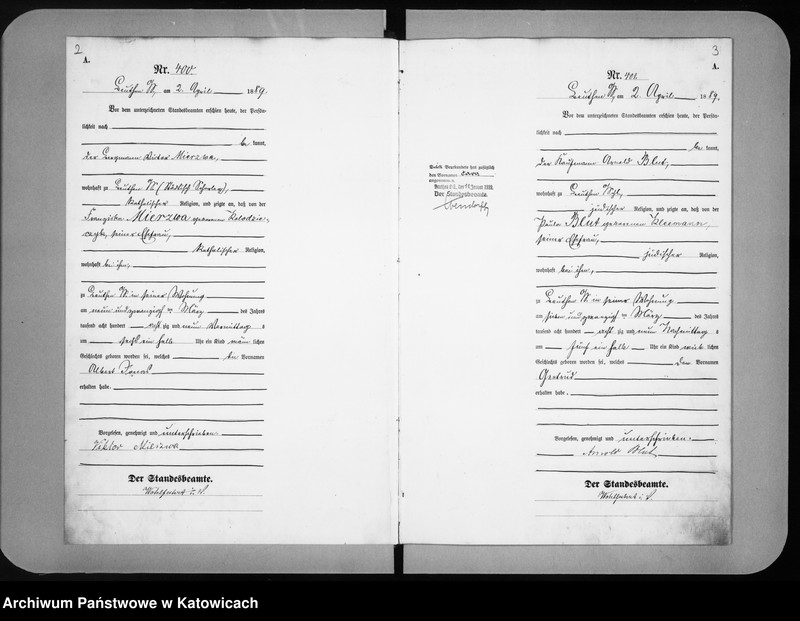 2
A.
Nr. 400.
Beuthen O/S, am 2. April 1889.
Vor dem unterzeichneten Standesbeamten erschien heute, der Persön-
lichkeit nach
be kannt,
der Bergmann Victor Mierzwa,
wohnhaft zu Beuthen O/S
katholischer Religion, und zeigte an, daß von der
Franziska Mierzwa geborenen
seiner Ehefrau,
katholischer Religion,
wohnhaft bei ihm,
zu Beuthen O/S in seiner Wohnung
am neun und zwanzigsten März des Jahres
tausend acht hundert acht zig und neun Vormittags
um sechs ein halb Uhr ein Kind männ lichen
Geschlechts geboren worden sei, welches den Vornamen
Albert
erhalten habe.
Vorgelesen, genehmigt und unterschrieben.
Viktor Mierzwa
Der Standesbeamte.
3
A.
Nr. 401.
Beuthen O/S, am 2. April 1889.
Vor dem unterzeichneten Standesbeamten erschien heute, der Persön-
lichkeit nach
be kannt,
der Kaufmann Arnold Blut,
wohnhaft zu Beuthen O/S,
jüdischer Religion, und zeigte an, daß von der
Paula Blut geborenen Kleemann,
seiner Ehefrau,
jüdischer Religion,
wohnhaft bei ihm,
zu Beuthen O/S in seiner Wohnung
am und zwanzigsten März des Jahres
tausend acht hundert acht zig und neun Nachmittags
um fünf ein halb Uhr ein Kind weib lichen
Geschlechts geboren worden sei, welches den Vornamen
Gertrud
erhalten habe.
Vorgelesen, genehmigt und unterschrieben.
Arnold Blut
Der Standesbeamte.
den Vornamen Sara
angenommen
Der Standesbeamte.
Archiwum Państwowe w Katowicach